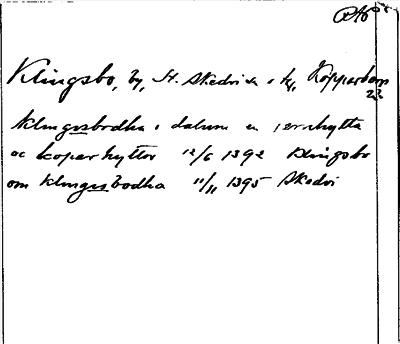 RAp
Klingsbo, by, St. Skedvi sn o kg, Kopparbergs
22
klungxsbodha i dalum en jernhytta
oc koparhyttor 12/6 1392 Klingsbo
om klungxsbodha 11/11 1395 Skedvi